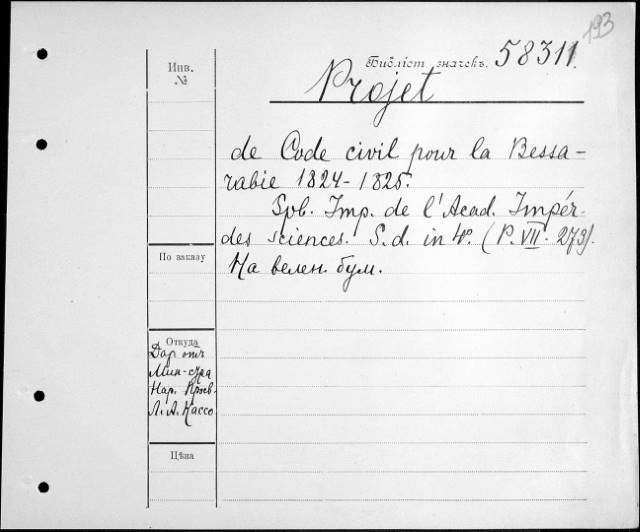 193
Инв.
№
Библіот. значекъ. 58311.
Projet
de Code civil pour la Bessa-
rabie 1824-1825.
Spb. Imp. de l'Acad. Impér.
des sciences. S.d. in 4º. (P. VII. 273).
На велен. бум.
По заказу
Откуда
Дар отъ
Мин-стра
Нар. Просв.
Л. А. Кассо
Цѣна